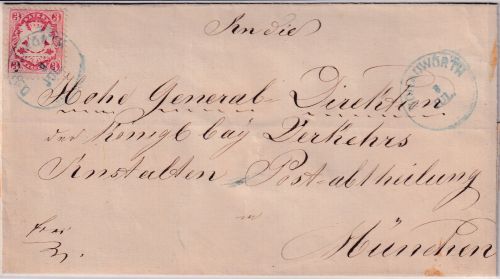 3 3
3 3
An die
Hohe General-Direktion
der Königl bay Verkehrs
Anstalten Post-abtheilung
in
München
frei
3.